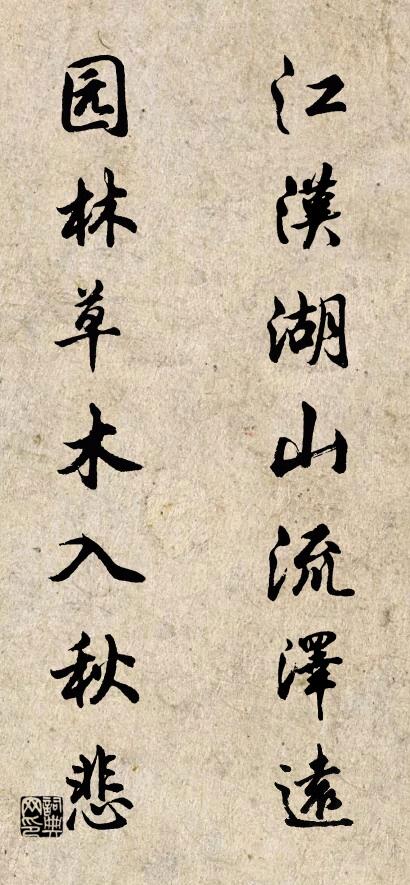 江漢湖山流澤遠
园林草木入秋悲
詞典网印